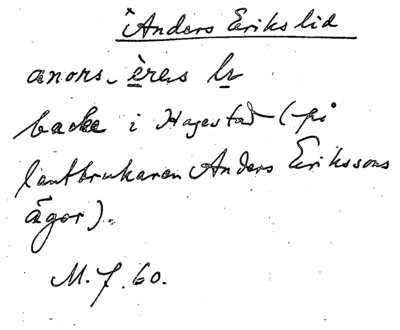 ˣAnders Eriks lid
anors_ èrəs lɩ
backe i Hagestad (på
lantbrukaren Anders Erikssons
ägor).
M. J. 60.